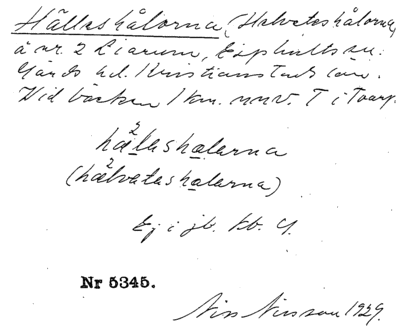 Hällashålorna (Halvateshålorna)
å nr. 2 Liarum, Esphults sn.
Gärds hd. Kristianstads län.
Vid bäcken 1 km. nnv. T i Toarp.
hälashalarna
(hälvatashalarna)
Ej i jb. kb. G.
Nr 5345.
Nils Nilsson 1929.